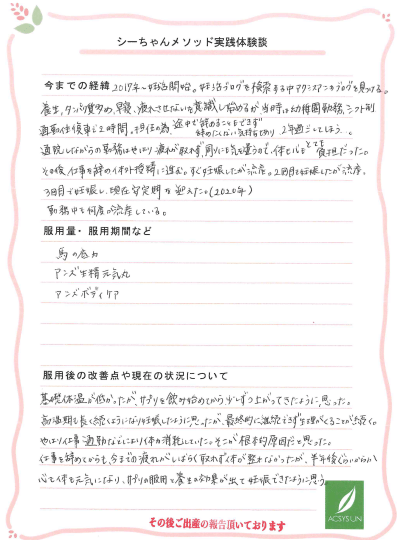 シーちゃんメソッド実践体験談
今までの経緯 2017年〜妊活開始。妊活ブログを検索する中アクシスアンキブログを見つける。
養生、タンパク質多め、早寝、疲れさせないを意識し始めるが当時は幼稚園勤務、シフト制
通勤往復車で2時間。担任の為、途中で辞めることもできず
辞めたくない気持ちもあり 2年過ごしてしまう…。
通院しながらの勤務はやはり疲れが取れず、周りにも気を遣うので、体も心もとても負担だった。
その後仕事を辞め体外授精に進む。すぐ妊娠したが流産。2回目も妊娠したが流産。
3回目で妊娠し、現在安定期を迎えた。(2020年)
勤務中も何度か流産している。
服用量・服用期間など
馬の
アンズ生精元気丸
アンズボディケア
服用後の改善点や現在の状況について
基礎体温が低かったが、サプリを飲み始めてから少しずつ上がってきたように思った。
高温期も長く続くようになり妊娠したように思ったが、最終的に継続できず生理がくることが続く。
やはり仕事、通勤などにより体が消耗していた。そこが根本的原因だと思った。
仕事を辞めてからも、今までの疲れがしばらく取れず体が整わなかったが、半年後ぐらいから
心も体も元気になり、サプリの服用と養生の効果が出て妊娠できたように思う。
その後ご出産の報告頂いております
ACSYSUN